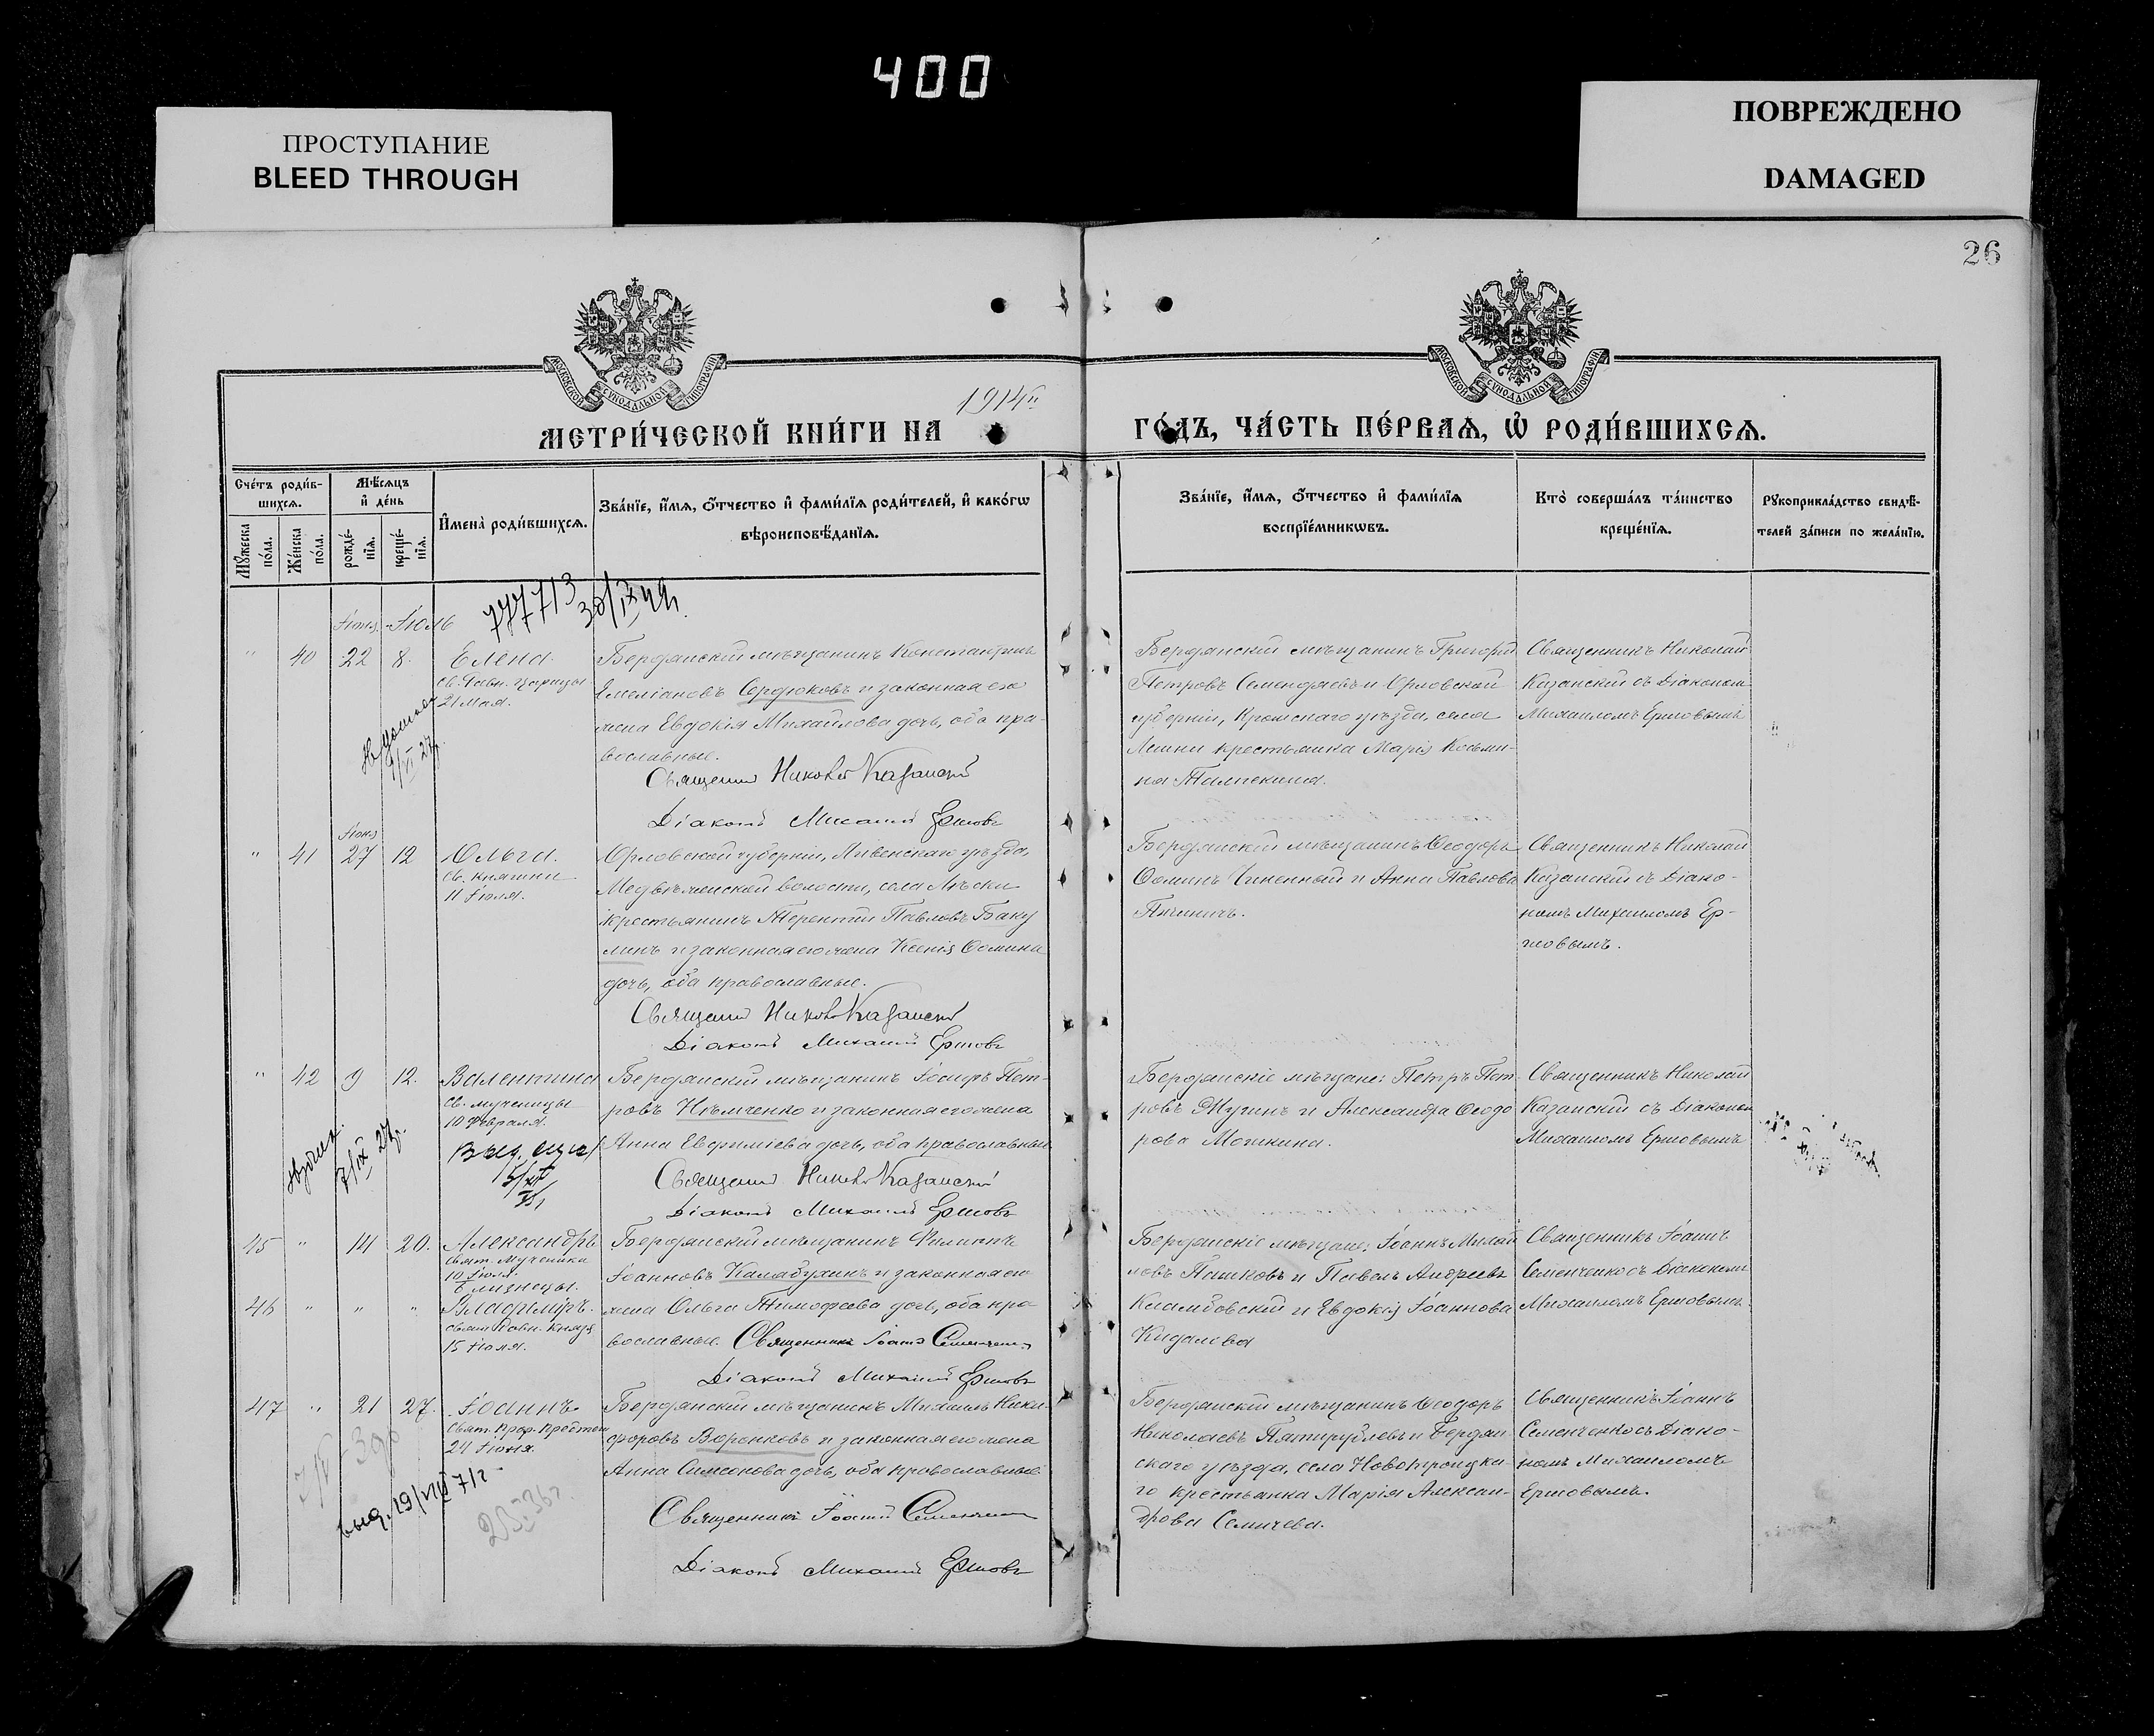 400
ПРОСТУПАНИЕ
BLEED THROUGH
ПОВРЕЖДЕНО
DAMAGED
26
МОСКОВСКОЙ СѴНОДАЛЬНОЙ ТИПОГРАФІИ
МОСКОВСКОЙ СѴНОДАЛЬНОЙ ТИПОГРАФІИ
МЕТРИ́ЧЕСКОЙ КНИ́ГИ НА 1914й ГО́ДЪ, ЧА́СТЬ ПЕ́РВАЯ, Ѡ҆ РОДИ́ВШИХСЯ.
Сче́тъ роди́в-
шихся.
Мꙋ́жеска по́ла.
Же́нска по́ла.
Мѣ́сяцъ и҆ де́нь
рожде́-нїя.
креще́-нїя.
И҆мена̀ роди́вшихся.
Зва́нїе, и҆́мя, ѻ҆́тчество и҆ фами́лїя роди́телей, и҆ како́гѡ
вѣроисповѣ́данїя.
Зва́нїе, и҆́мя, ѻ҆́тчество и҆ фами́лїя
воспрїе́мникѡвъ.
Кто̀ соверша́лъ та́инство
креще́нїя.
Рꙋкоприкла́дство свидѣ́-
телей за́писи по жела́нїю.
777713
Іюня Іюль
" 40 22 8. Елена.
св. Равн. Царицы
21 Мая.
Бердянскій мѣщанинъ Константинъ
Емеліановъ Сердюковъ и законная его
жена Евдокія Михайлова дочь, оба пра-
вославные.
Священникъ Николай Казанскій
Діаконъ Михаилъ Ершовъ
Бердянскій мѣщанинъ Григорій
Петровъ Семендяевъ и Орловской
губерніи, Кромскаго уѣзда, села
крестьянка Марія Косьми-
на
Священникъ Николай
Казанскій съ Діакономъ
Михаиломъ Ершовымъ
Іюня
" 41 27 12 Ольга.
св. княгини
11 Іюля.
Орловской губерніи, Ливенскаго уѣзда,
волости, села
крестьянинъ Терентій Павловъ Баку-
линъ и законная его жена Ксенія Ѳомина
дочь, оба православные.
Священникъ Николай Казанскій
Діаконъ Михаилъ Ершовъ
Бердянскій мѣщанинъ Ѳеодоръ
Ѳоминъ и Анна Павлова
Священникъ Николай
Казанскій съ Діако-
номъ Михаиломъ Ер-
шовымъ.
" 42 9 12. Валентина
св. мученицы
10 Февраля.
Бердянскій мѣщанинъ Іосифъ Пет-
ровъ Нѣмченко и законная его жена
Анна Евфиміева дочь, оба православные
Священникъ Николай Казанскій
Діаконъ Михаилъ Ершовъ
Бердянскіе мѣщане: Петръ Пет-
ровъ и Александра Ѳеодо-
рова
Священникъ Николай
Казанскій съ Діакономъ
Михаиломъ Ершовымъ
45 " 14 20. Александръ
Свят. Мученика
10 Іюля.
Близнецы.
46 " " " Владиміръ.
Свят. Равн. Князя
15 Іюля.
Бердянскій мѣщанинъ Филиппъ
Іоанновъ Калабухинъ и законная его
жена Ольга Тимофеева дочь, оба пра-
вославные. Священникъ Іоаннъ Семенченко
Діаконъ Михаилъ Ершовъ
Бердянскіе мѣщане: Іоаннъ
Пашковъ и Павелъ Андреевъ
и Евдокія Іоаннова
Кидалова
Священникъ Іоаннъ
Семенченко съ Діакономъ
Михаиломъ Ершовымъ.
47 " 21 27. Іоаннъ.
Свят. Прор. Предтечи
24 Іюня.
Бердянскій мѣщанинъ Михаилъ Ники-
форовъ Воронковъ и законная его жена
Анна Симеонова дочь, оба православные
Священникъ Іоаннъ Семенченко
Діаконъ Михаилъ Ершовъ
Бердянскій мѣщанинъ Ѳеодоръ
Николаевъ Пятирублевъ и Бердян-
скаго уѣзда, села Новотроицка-
го крестьянка Марія Алексан-
дрова Семичева.
Священникъ Іоаннъ
Семенченко съ Діако-
номъ Михаиломъ
Ершовымъ.
выд. 19/VIII 71г